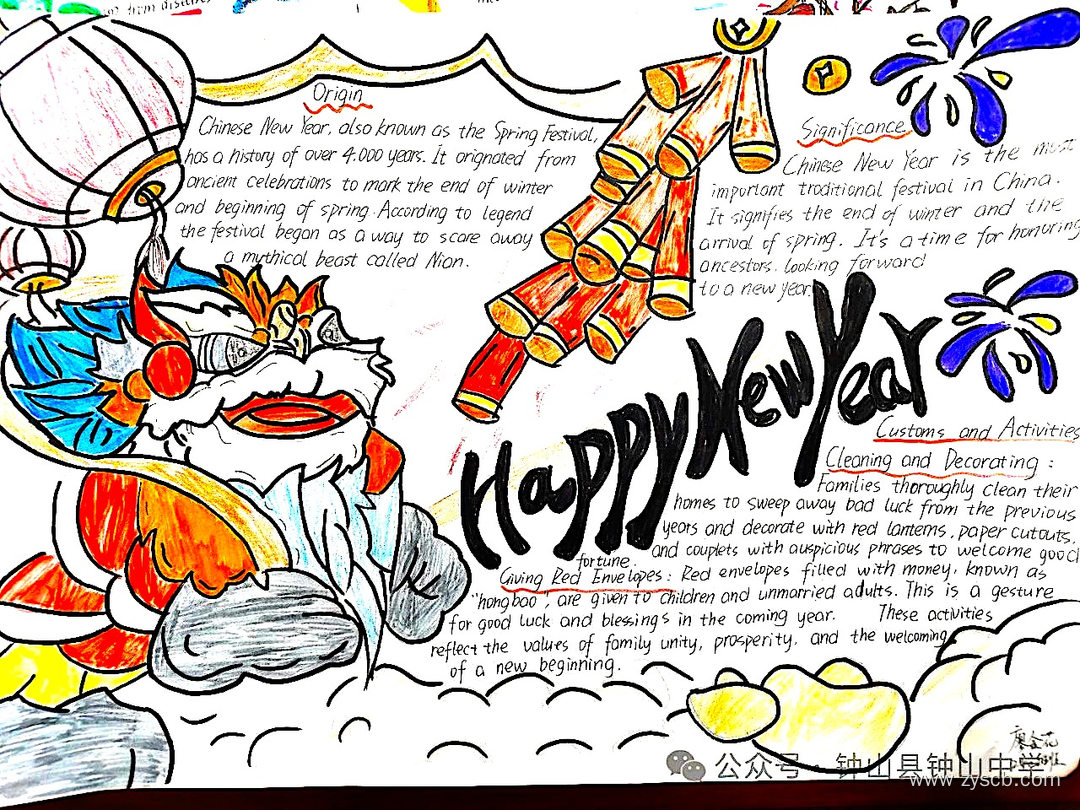 Origin
Chinese New Year, also known as the Spring Festival,
has a history of over 4.000 years. It orignated from
ancient celebrations to mark the end of winter
and beginning of spring. According to legend
the festival began as a way to scare away
a mythical beast called Nian.
Significance
Chinese New Year is the most
important traditional festival in China.
It signifies the end of winter and the
arrival of spring. It's a time for honouring
ancestors, looking forward
to a new year.
Happy New Year
Customs and Activities
Cleaning and Decorating :
Families thoroughly clean their
homes to sweep away bad luck from the previous
years and decorate with red lanterns, paper cutouts,
and couplets with auspicious phrases to welcome good
fortune.
Giving Red Envelopes : Red envelopes filled with money, known as
"hongbao", are given to children and unmarried adults. This is a gesture
for good luck and blessings in the coming year. These activities
reflect the values of family unity, prosperity, and the welcoming
of a new beginning.
公众号 · 钟山县钟山中学
www.zyscb.com